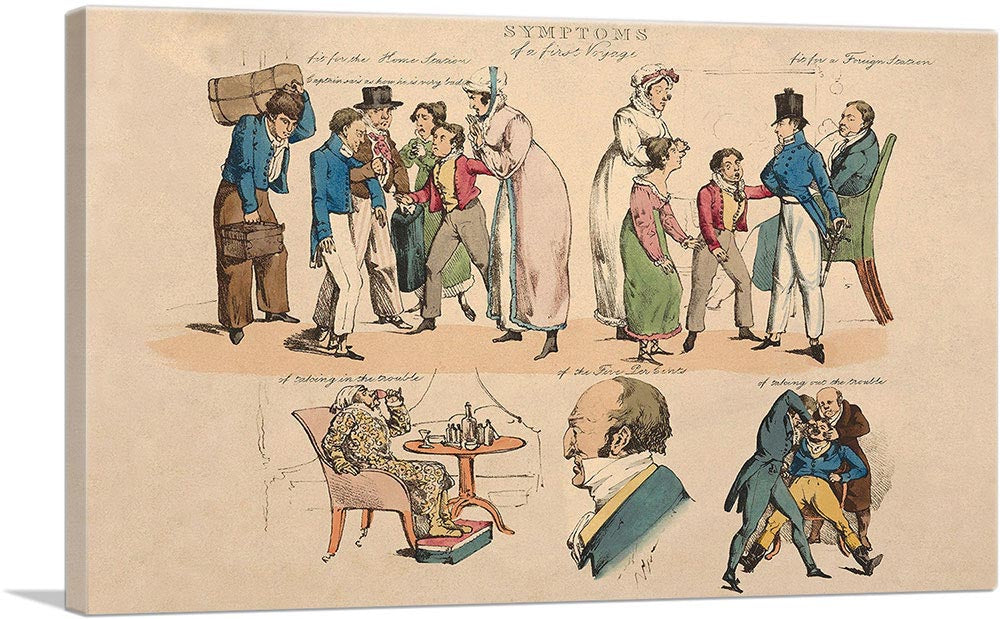 SYMPTOMS
of a first Voyage
fit for the Home Station
Captain sais as how he is very bad
fit for a Foreign Station
of taking in the trouble
of the Five Per Cents
of taking out the trouble